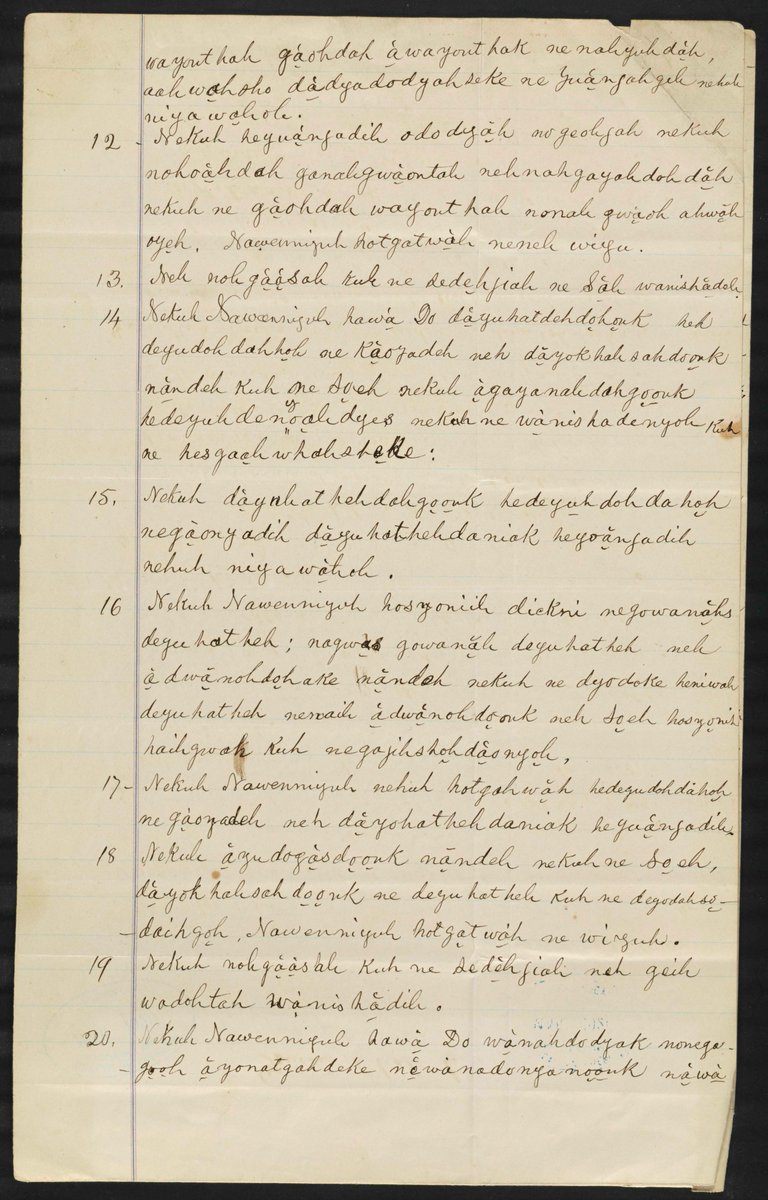 wayouthah gäohdah äwayouthak ne nahyuhdäh,
aahwahsho dädyadodyahseke ne Yuänjahgeh nehuh
niyawahoh.
12 - Nekuh heyuänjadih ododyäh nogeohjah nekuh
nohoähdah ganahgwäontah neh nahgayahdohdäh
nekuh ne gäohdah wayouthah nonahgwäoh ahwäh
oyeh. Nawenniyuh hotgatwäh neneh wiyu.
13. Neh nohgääsah kuh ne sedehjiah ne Säh wanishädeh.
14 Nekuh Nawenniyuh hawä Do däyuhatdehdohouk heh
deyudohdahhoh ne Käoyadeh neh däyokhahsahdoouk
nändeh kuh ne soeh nekuh ägayanahdahgoouk
hedeyuhdenyoahdyes nekuh ne wänishadenyoh kuh
ne hesgaah whahsteke:
15. Nekuh däyuhathehdahgoouk hedeyuhdohdahoh
negäonyadih däyuhathehdaniak heyoänjadih
nehuh niyawähoh.
16 Nekuh Nawenniyuh hosyoniih dickni negowanähs
deyuhatheh; nagwas gowanäh deyuhatheh neh
ädwänohdohake nändeh nekuh ne dyodoke heniwah
deyuhatheh newaih ädwänohdoouk neh soeh hosyonih
haihgwah kuh negajihshohdäonyoh.
17 - Nekuh Nawenniyuh nehuh hotgahwäh hedeyudohdahoh
ne gäoyadeh neh däyohathehdaniak heyuänjadih
18 Nekuh äyudogäsdoouk nändeh nekuh ne soeh,
däyokhahsahdoouk ne deyuhatheh kuh ne deyodahsö-
-daihgoh. Nawenniyuh hotgätwäh ne wiyuh.
19 Nekuh nohgääsah kuh ne sedehjiah neh geih
wadohtah wänishädih.
20. Nekuh Nawenniyuh hawä Do wänahdodyak nonega-
-gooh äyonatgahdeke näwänadonyanoouk näwä